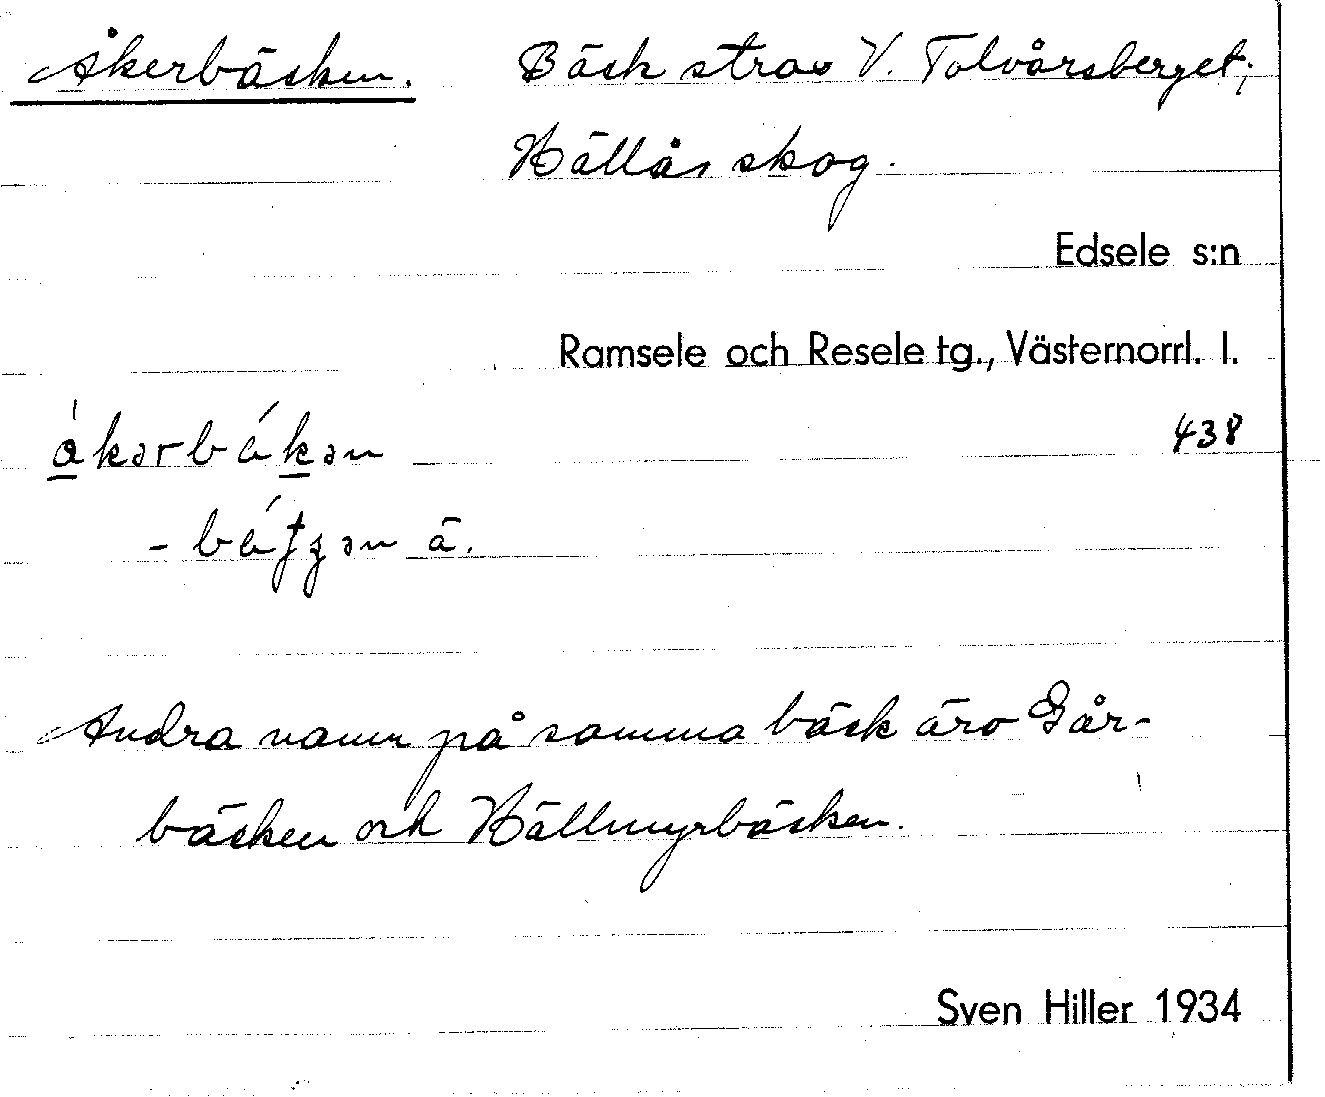 Åkerbäcken. Bäck strax V. Tolvårsberget;
Hällås skog.
Edsele s:n
Ramsele och Resele tg., Västernorrl. l.
438
ä.
Andra namn på samma bäck äro Går-
bäcken och Hällmyrbäcken.
Sven Hiller 1934